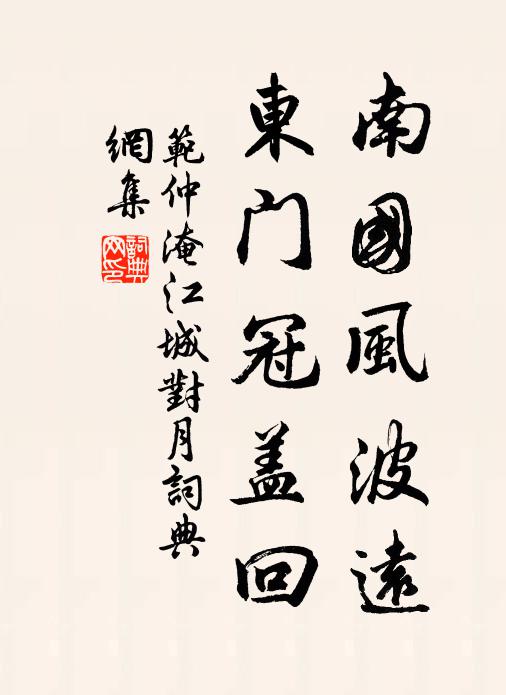 南國風波遠
東门冠盖回
範仲淹江城對月詞典
網集
詞典
网印